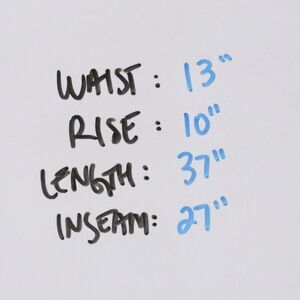 WAIST: 13"
RISE: 10"
LENGTH: 37"
INSEAM: 27"